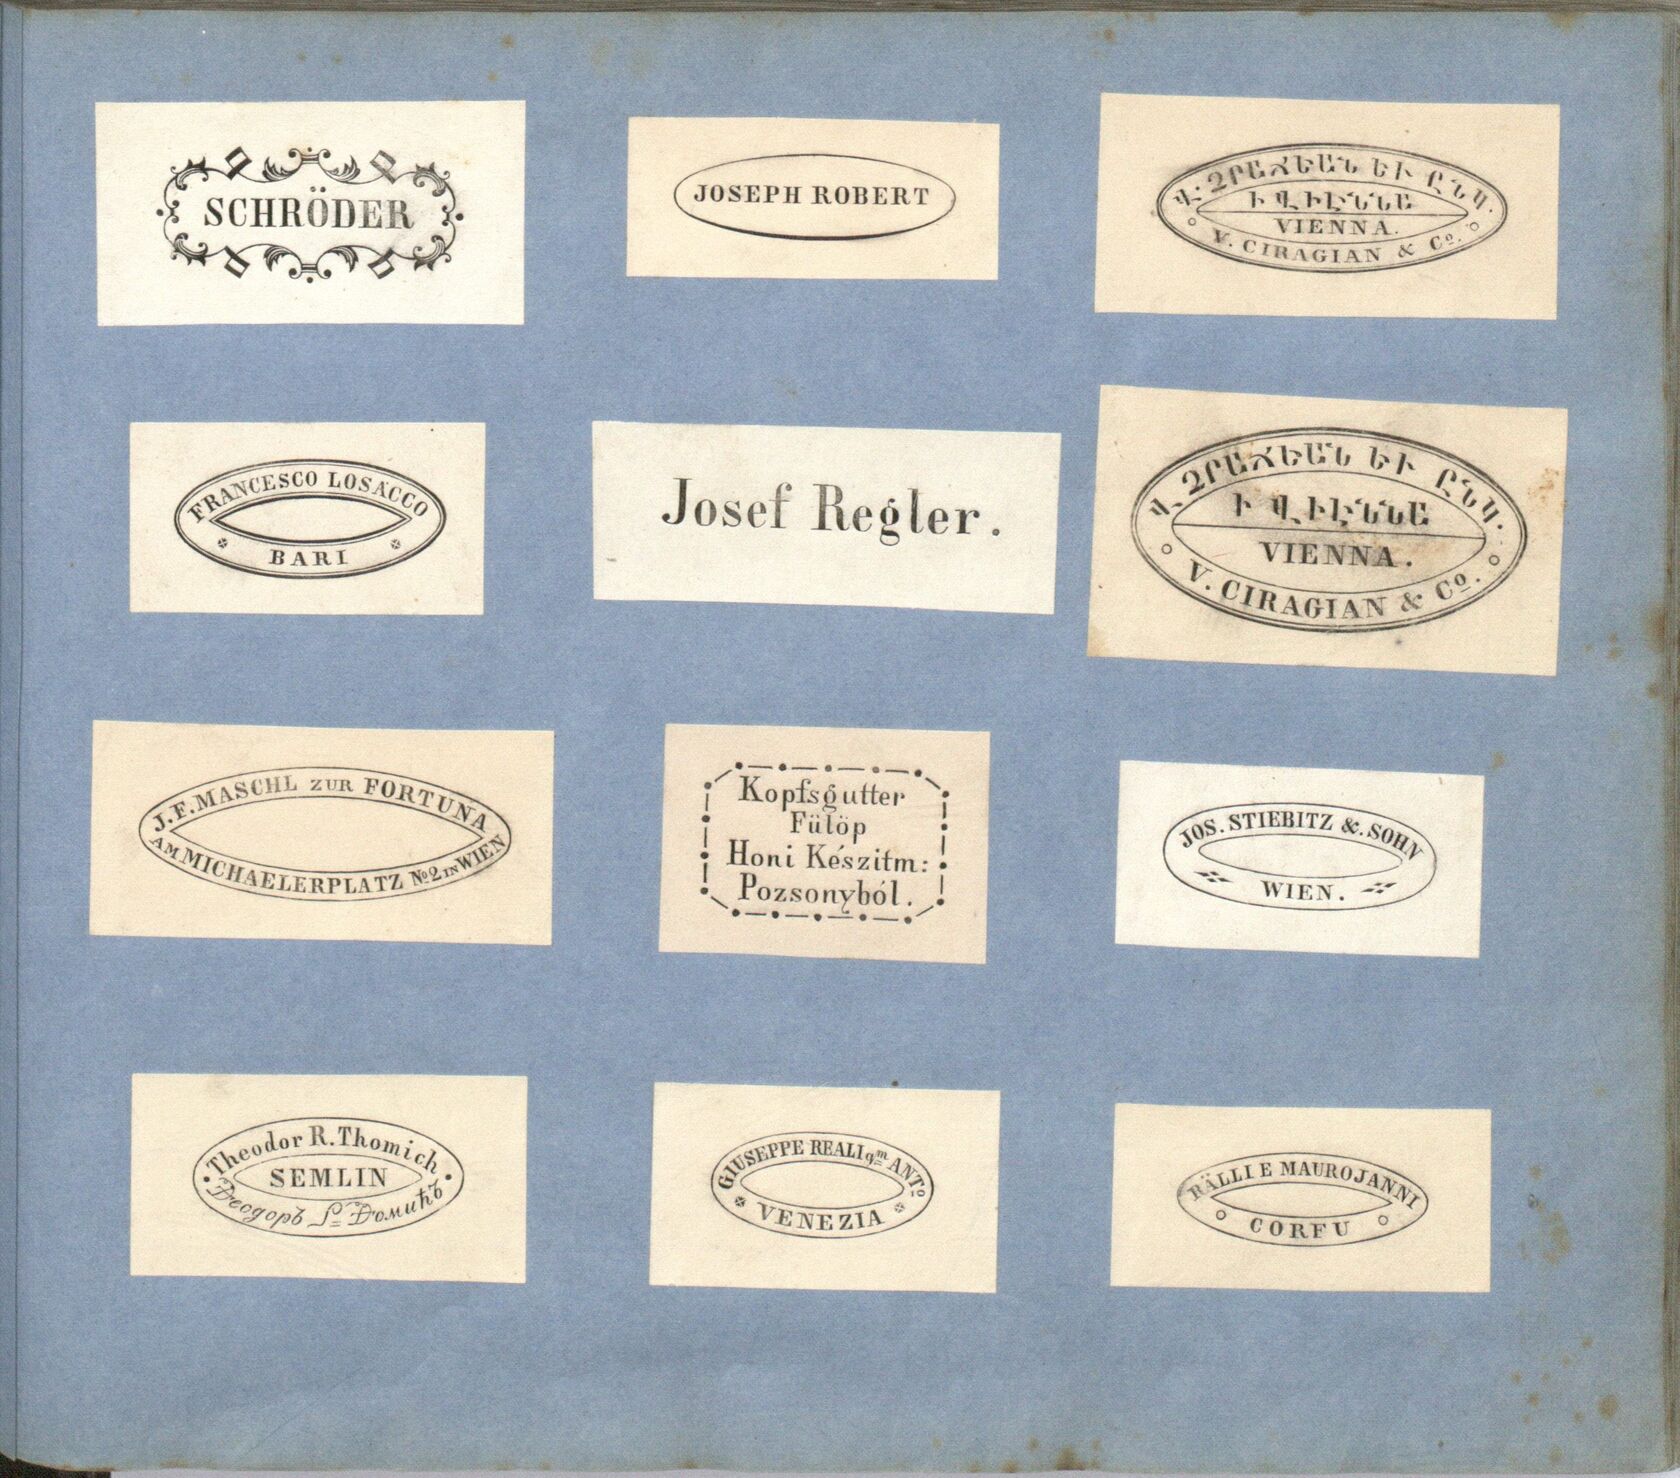 SCHRÖDER
JOSEPH ROBERT
Վ. ՉՐԱՃԵԱՆ ԵՒ ԸՆԿ.
Ի ՎԻԷՆՆԱ
VIENNA.
V. CIRAGIAN & Cº.
FRANCESCO LOSACCO
BARI
Josef Regler.
Վ. ՉՐԱՃԵԱՆ ԵՒ ԸՆԿ.
Ի ՎԻԷՆՆԱ
VIENNA.
V. CIRAGIAN & Cº.
J. F. MASCHL ZUR FORTUNA
AM MICHAELERPLATZ Nº 2 IN WIEN
Kopfsgutter
Fülöp
Honi Készitm:
Pozsonyból.
JOS. STIEBITZ &. SOHN
WIEN.
Theodor R. Thomich
SEMLIN
GIUSEPPE REALI qm ANTº
VENEZIA
RÄLLI E MAUROJANNI
CORFU